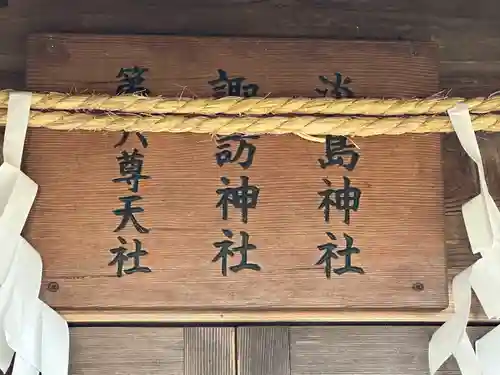 淡島神社
諏訪神社
第六尊天社